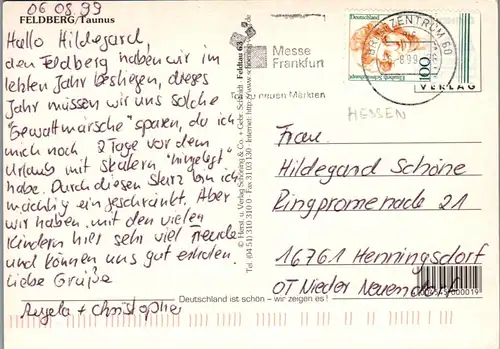 06 08.99
FELDBERG/Taunus
Hallo Hildegard,
den Feldberg haben wir im
letzten Jahr bestiegen, dieses
Jahr müssen wir uns solche
"Gewaltmärsche" sparen, da ich
mich noch 2 Tage vor dem
Urlaub mit Skatern "hingelegt"
habe. Durch diesen Sturz bin ich
mächtig eingeschränkt. Aber
wir haben mit den vielen
Kindern hier sehr viel Freude
und können uns gut erholen.
Liebe Grüße
Angela + Christopher
Deutschland ist schön – wir zeigen es!
© Horst u. Verlag Schöning & Co. + Gebr. Schmidt
Feldtau 63
Tel. (04 51) 310 310 0 · Fax 31 03 130 · Internet: http://www.schoening-verlag.de
Messe
Frankfurt
neuen Märkten
BRIEFZENTRUM 60
8.99
Deutschland
100
VERLAG
HESSEN
Frau
Hildegard Schöne
Ringpromenade 21
16761 Henningsdorf
OT Nieder Neuendorf